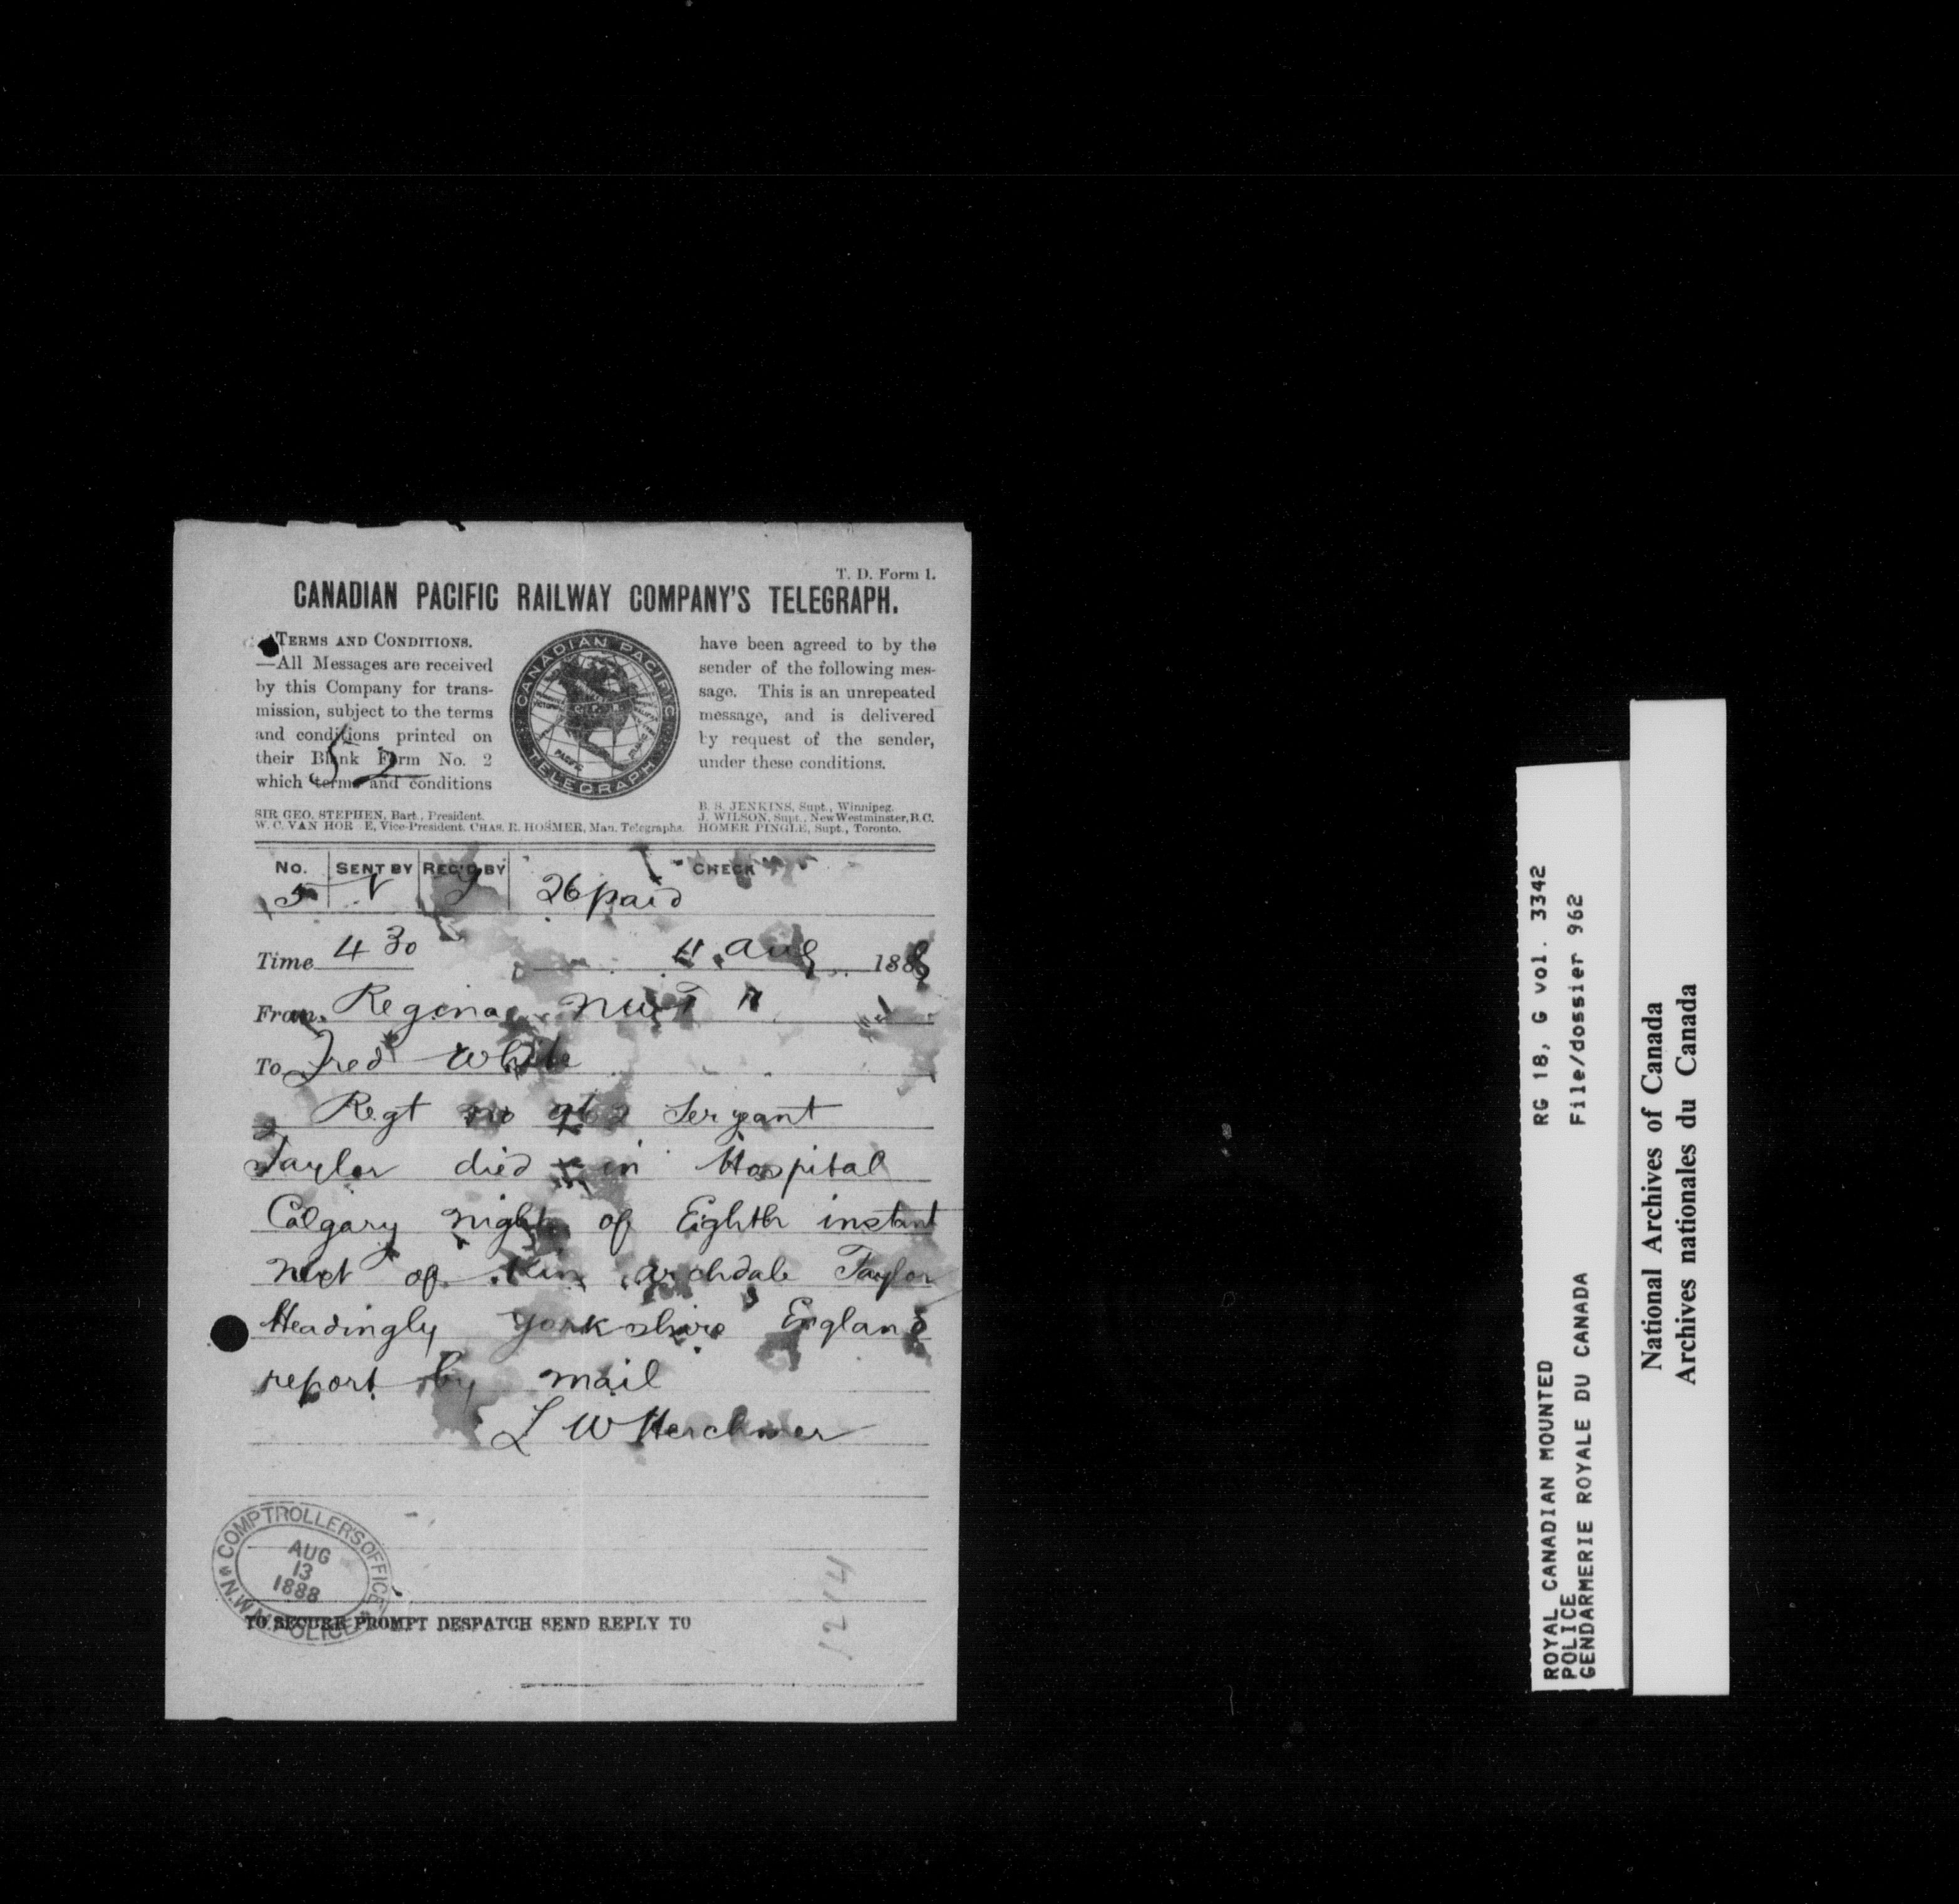 T. D. Form 1.
CANADIAN PACIFIC RAILWAY COMPANY'S TELEGRAPH.
TERMS AND CONDITIONS.
—All Messages are received
by this Company for trans-
mission, subject to the terms
and conditions printed on
their Blank Form No. 2
which terms and conditions
52
CANADIAN PACIFIC
TELEGRAPH
have been agreed to by the
sender of the following mes-
sage. This is an unrepeated
message, and is delivered
by request of the sender,
under these conditions.
SIR GEO. STEPHEN, Bart., President.
W. C. VAN HOR E, Vice-President. CHAS. R. HOSMER, Man. Telegraphs.
B. S. JENKINS, Supt., Winnipeg.
J. WILSON, Supt., New Westminster, B.C.
HOMER PINGLE, Supt., Toronto.
No. SENT BY REC'D BY CHECK
5 26 paid
Time 4 30 11 Aug 1888
From Regina NWT 11
To Fred White
Regt no 962 Sergant
Taylor died in Hospital
Calgary night of Eighth instant
next of kin archdale Taylor
Headingly Yorkshire England
report by mail
L W Herchmer
COMPTROLLER'S OFFICE
AUG
13
1888
N.W.M. POLICE
TO SECURE PROMPT DESPATCH SEND REPLY TO
1214
ROYAL CANADIAN MOUNTED
POLICE
GENDARMERIE ROYALE DU CANADA
RG 18, G vol. 3342
File/dossier 962
National Archives of Canada
Archives nationales du Canada